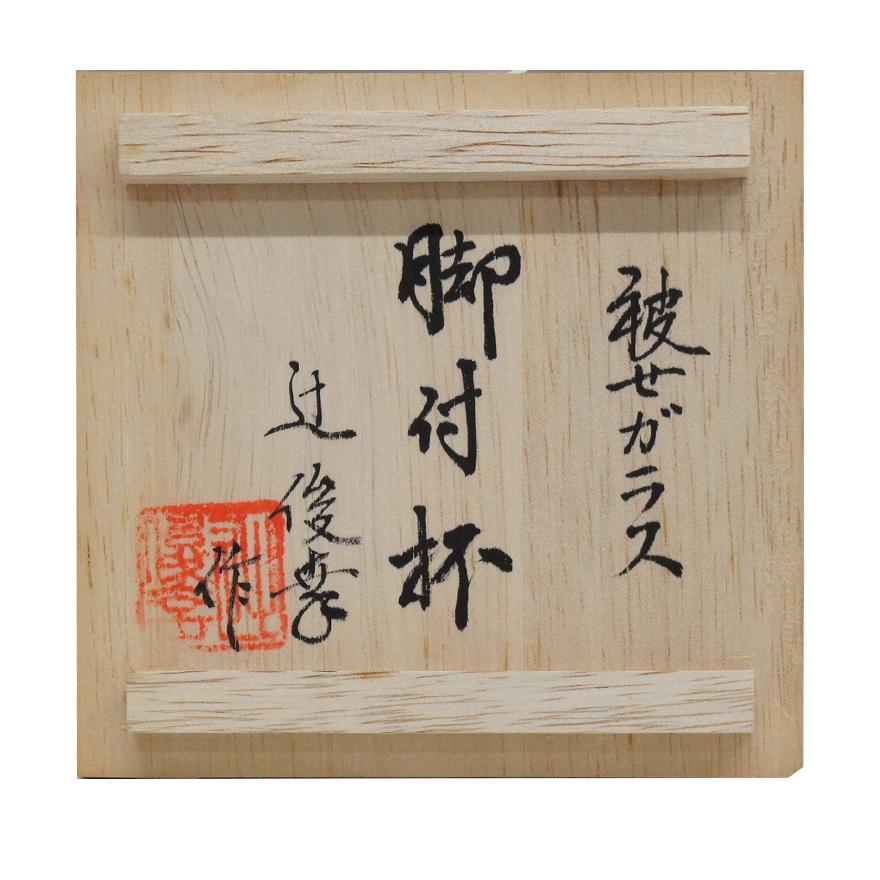 被せガラス
脚付杯
辻俊幸
作